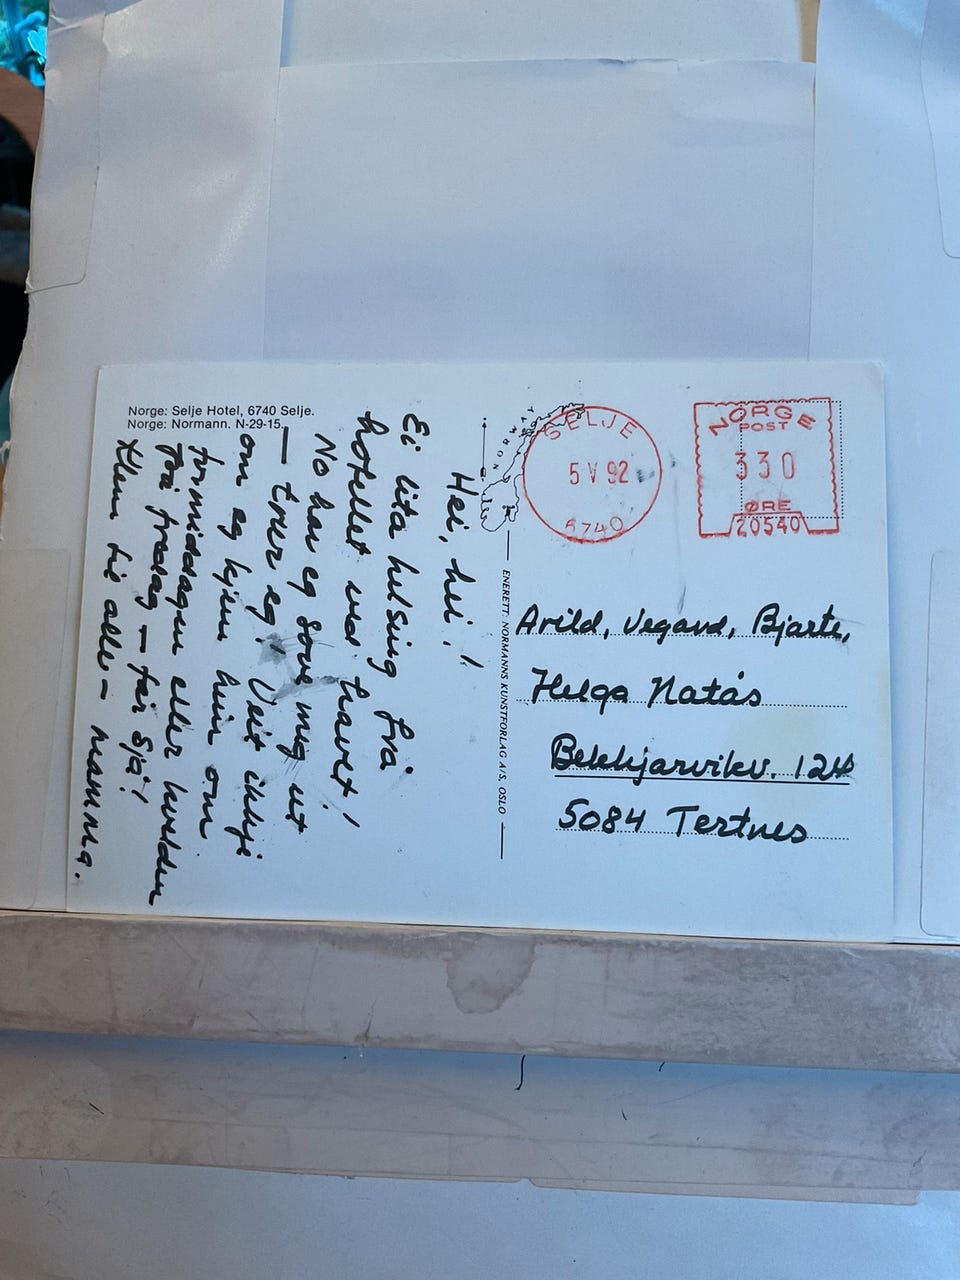 Norge: Selje Hotel, 6740 Selje.
Norge: Normann. N-29-15.
Hei, hei!
Ei lita helsing frå
hotellet ved havet!
No har eg sove mig ut
— trur eg! Veit ikkje
om eg kjem heim om
formiddagen eller kvelden
på fredag — får sjå!
Klem til alle – mamma.
NORWAY
SELJE
5 V 92
6740
NORGE
POST
330
ØRE
20540
ENERETT: NORMANNS KUNSTFORLAG A/S, OSLO
Arild, Vegard, Bjarte,
Helga Natås
124
5084 Tertnes